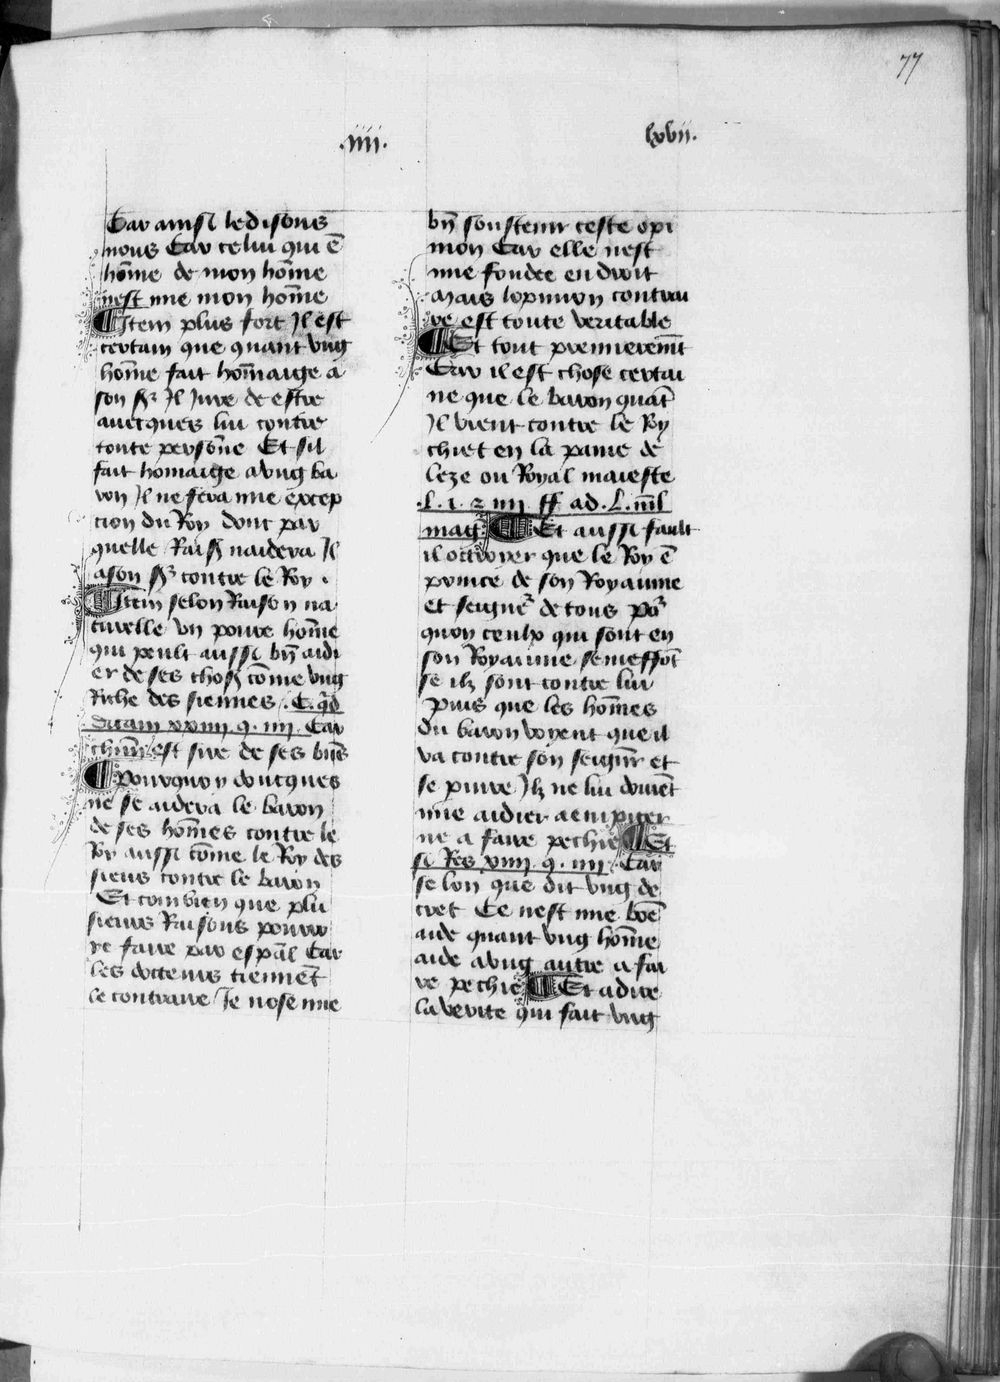 77
.iiii. lxvii.
Car ainsi le disons
nous Car celui qui ē
hōme de mon hōme
nest mie mon hōme
¶ Item plus fort Il est
certain que quant ung
hōme fait hōmaige a
son sr̄ Il Jure de estre
avecques lui contre
toute persōne Et sil
fait homaige a ung ba
ron Il ne fera mie excep
cion du Roy dont par
quelle Raisō naidera Il
a son sr̄ contre le Roy .
¶ Item selon Raison na
turelle un povre hōme
qui peult aussi bn̄ aidi
er de ses chos̄ cōme ung
Riche des siennes . C. qd̄
dicam xxiiii. q. iiii. Car
chūn est sire de ses bn̄s
¶ Pourquoy doncques
ne se aidera le baron
de ses hōmes contre le
Roy aussi cōme le Roy des
siens contre le baron
Et combien que plu
sieurs Raisons pourro
ye faire par espāl Car
les docteurs tiennēt
le contraire / Je nose mie
bn̄ soustenir ceste opi
nion Car elle nest
mie fondee en droit
Mais lopinion contrai
re est toute veritable
¶ Et tout premieremt̄
Car il est chose certai
ne que le baron quāt
Il vient contre le Roy
chiet en la paine de
leze ou Royal maieste
.L. i. 2 iiii ff ad. L. iuil
mag. ¶ Et aussi fault
il octroyer que le Roy ē
prince de son Royaume
et seignr̄ de tous por̄
quoy ceulx qui sont en
son Royaume se meffōt
se ilz sont contre lui
Puis que les hōmes
du baron voyent que il
va contre son seignr̄ et
se parjure Ilz ne lui doivēt
mie aidier a empirer
ne a faire pechie ¶ Et
si Res xiiii. q. iiii. Car
selon que dit ung de
cret Ce nest mie bōe
aide quant ung hōme
aide a ung autre a fai
re pechie ¶ Et a dire
la verite qui fait ung